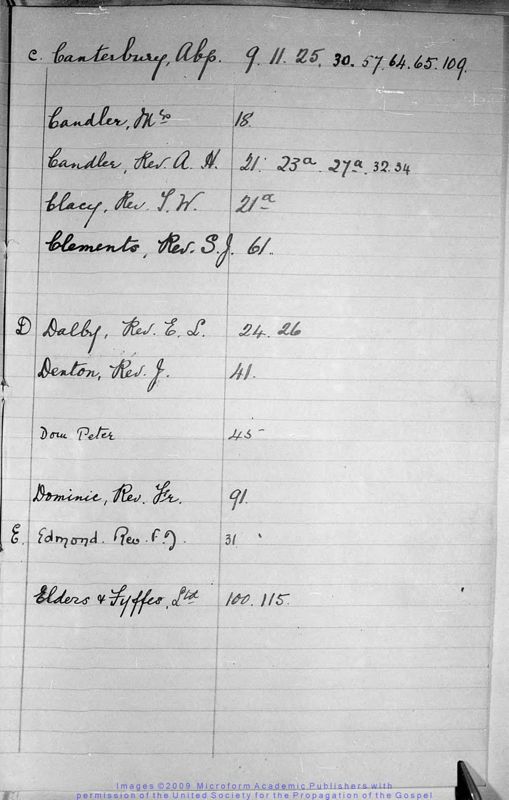 C. Canterbury, Abp. 9. 11. 25. 30. 57. 64. 65. 109.
Candler, Mrs 18.
Candler, Rev. A. H. 21. 23a. 27a. 32. 34
Clacy, Rev. T. W. 21a
Clements, Rev. S. J. 61.
D Dalby, Rev. E. L. 24. 26
Denton, Rev. J. 41.
Dom Peter 45
Dominic, Rev. Fr. 91.
E. Edmond. Rev. 31
Elders & Fyffes, Ltd 100. 115.
Images ©2009 Microform Academic Publishers with
permission of the United Society for the Propagation of the Gospel